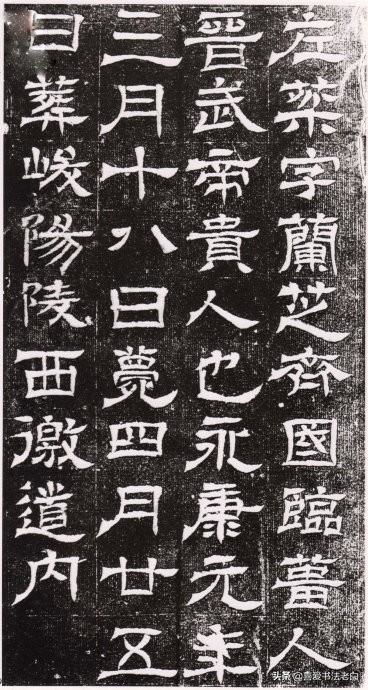 左棻字蘭芝齊國臨菑人
晉武帝貴人也永康元年
三月十八日薨四月廿五
日葬峻陽陵西徼道內
头条 @喜爱书法老白